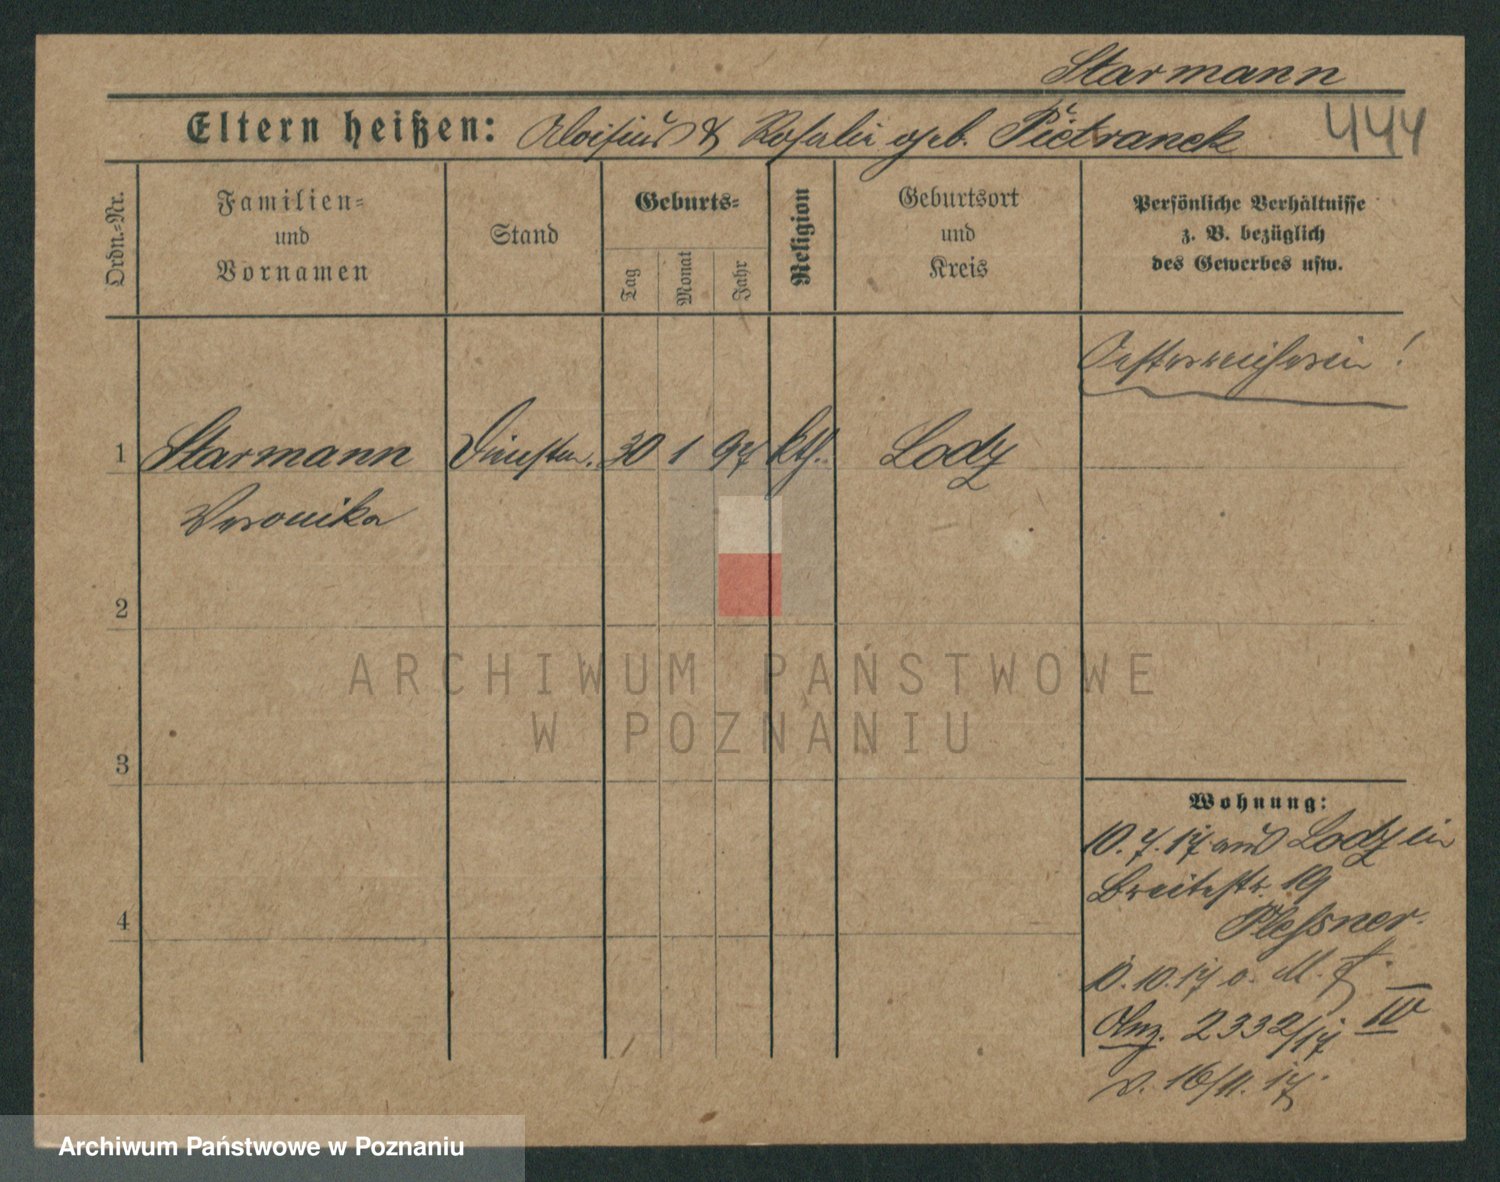 Starmann
Eltern heißen: Aloisius & Rosalie geb. Pietranek
444
Ordn.-Nr.
Familien-
und
Vornamen
Stand
Geburts-
Tag
Monat
Jahr
Religion
Geburtsort
und
Kreis
Persönliche Verhältnisse
z. B. bezüglich
des Gewerbes usw.
Oesterreicherin!
1 Starmann Dienstm. 30 1 97 kth. Lodz
Veronika
2
3
4
Wohnung:
10.7.17 aus Lodz in
Breitestr. 19
Plessner.
10.10.17 o. M.
Anz. 2332/17 IV
v. 16/11.17.
ARCHIWUM PAŃSTWOWE
W POZNANIU
Archiwum Państwowe w Poznaniu